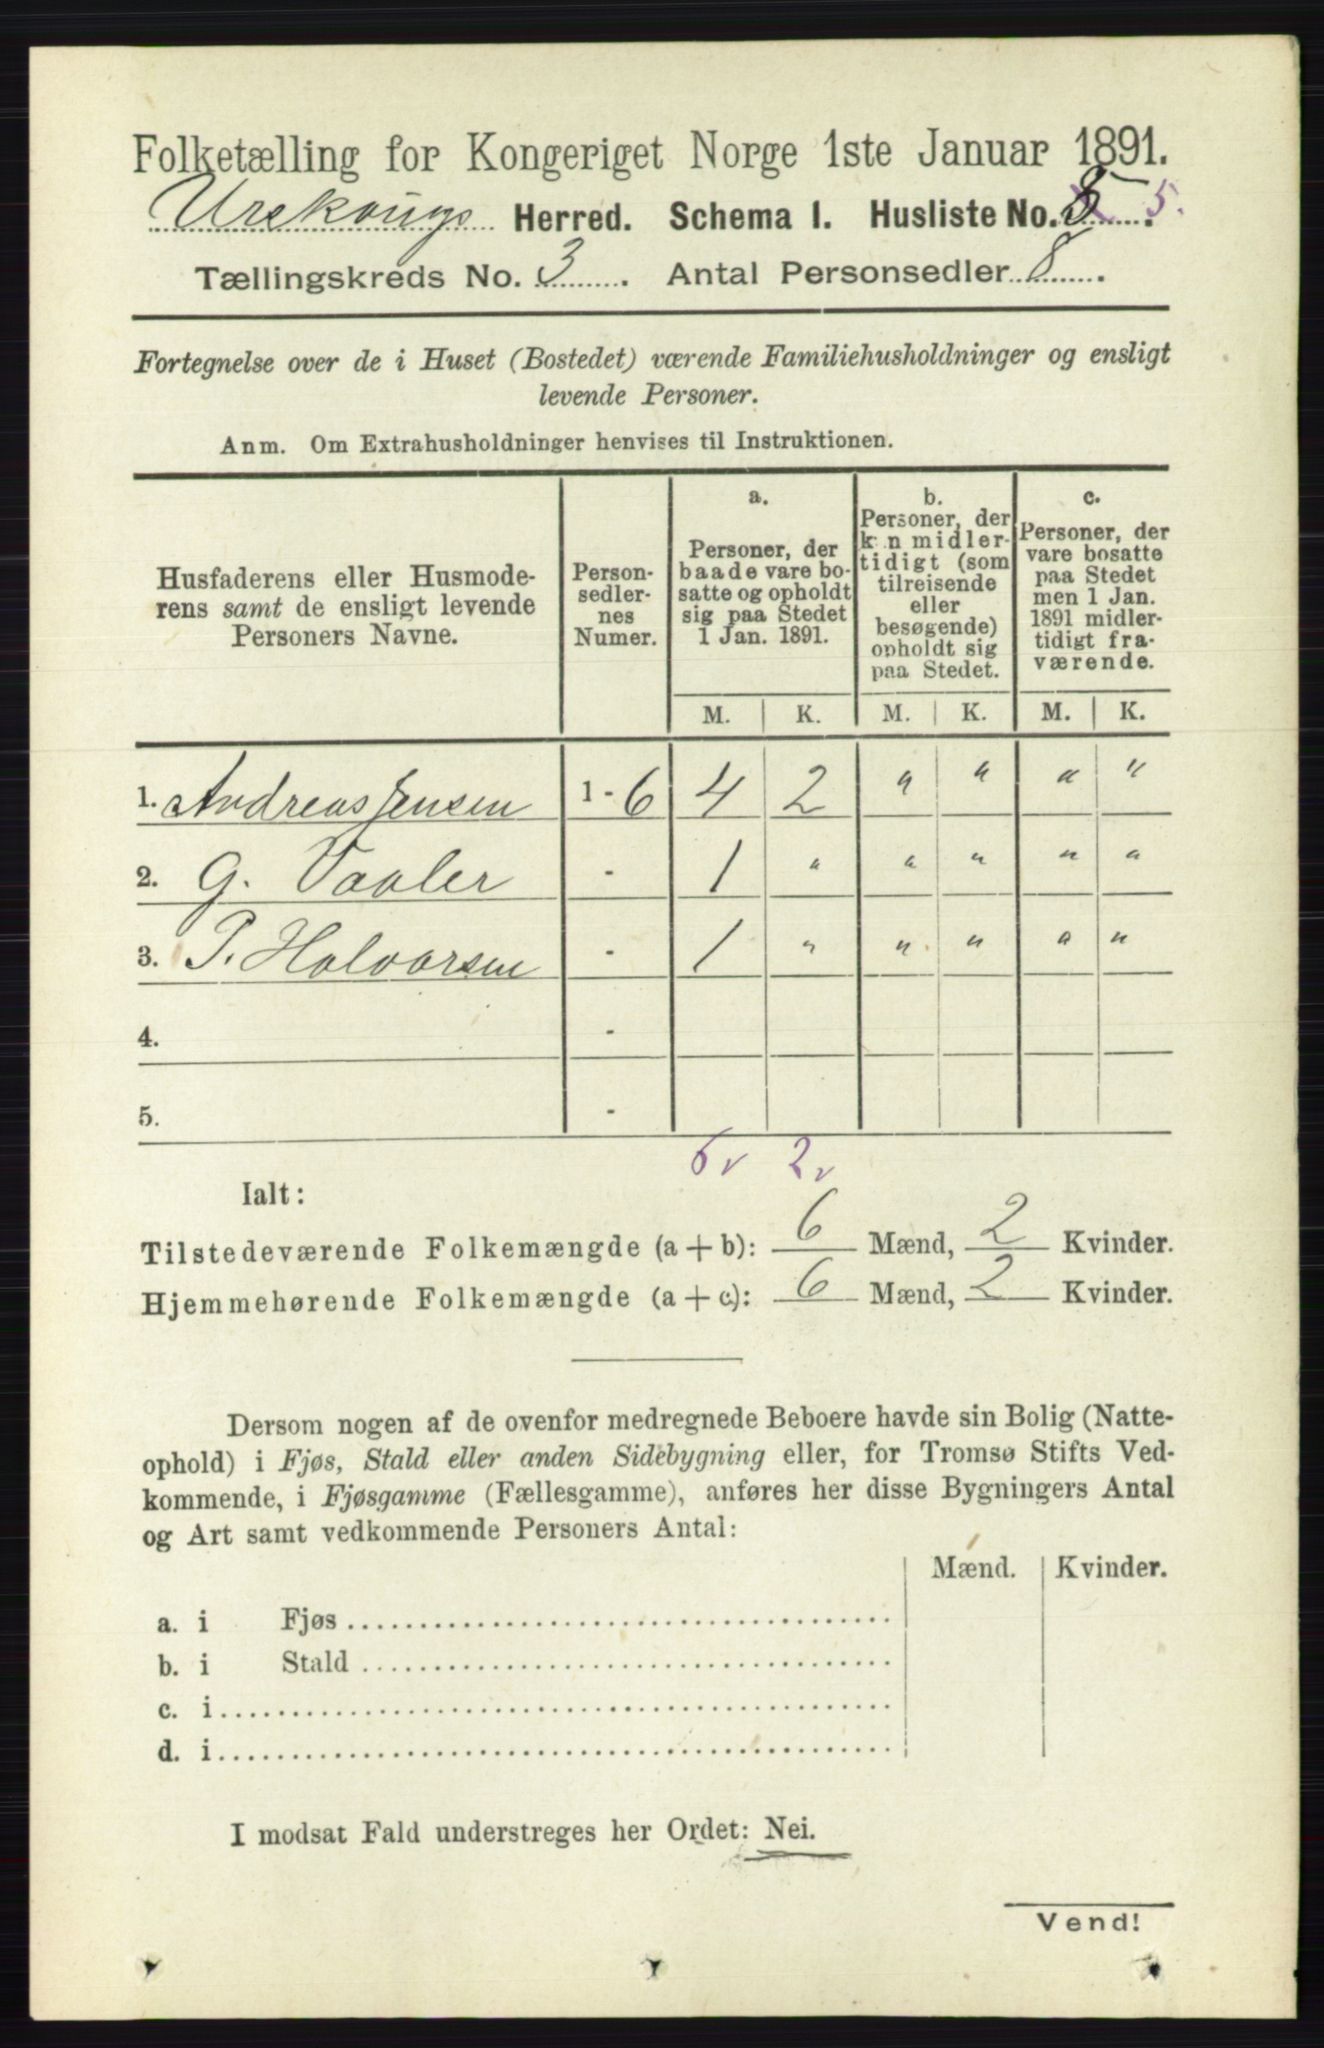 Folketælling for Kongeriget Norge 1ste Januar 1891.
Urskougs Herred. Schema I. Husliste No. 5 5.
Tællingskreds No. 3. Antal Personsedler 8.
Fortegnelse over de i Huset (Bostedet) værende Familiehusholdninger og ensligt
levende Personer.
Anm. Om Extrahusholdninger henvises til Instruktionen.
Husfaderens eller Husmode-
rens samt de ensligt levende
Personers Navne.
Person-
sedler-
nes
Numer.
a.
Personer, der
baade vare bo-
satte og opholdt
sig paa Stedet
1 Jan. 1891.
b.
Personer, der
kun midler-
tidigt (som
tilreisende
eller
besøgende)
opholdt sig
paa Stedet.
c.
Personer, der
vare bosatte
paa Stedet
men 1 Jan.
1891 midler-
tidigt fra-
værende.
M. K. M. K. M. K.
1. Andreas Jensen 1 - 6 4 2 " " " "
2. G. Vaaler - 1 " " " " "
3. P. Halvorsen - 1 " " " " "
4. -
5. -
6 v 2 v
Ialt:
Tilstedeværende Folkemængde (a + b): 6 Mænd, 2 Kvinder.
Hjemmehørende Folkemængde (a + c): 6 Mænd, 2 Kvinder.
Dersom nogen af de ovenfor medregnede Beboere havde sin Bolig (Natte-
ophold) i Fjøs, Stald eller anden Sidebygning eller, for Tromsø Stifts Ved-
kommende, i Fjøsgamme (Fællesgamme), anføres her disse Bygningers Antal
og Art samt vedkommende Personers Antal:
Mænd. Kvinder.
a. i Fjøs
b. i Stald
c. i
d. i
I modsat Fald understreges her Ordet: Nei.
Vend!